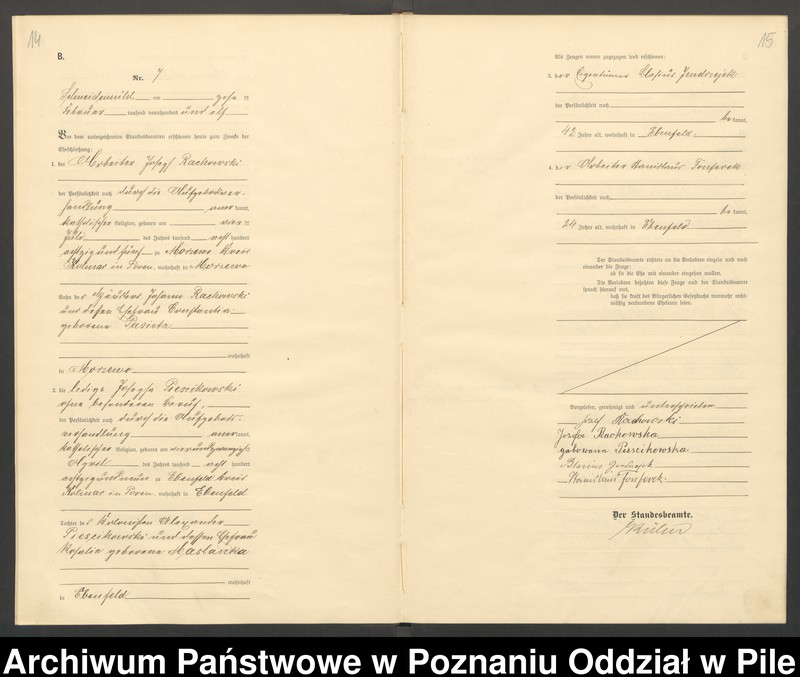 14
B.
Nr. 7
Schneidemühl am zehn ten
Februar tausend neunhundert und elf
Vor dem unterzeichneten Standesbeamten erschienen heute zum Zwecke der
Eheschließung:
1. der Arbeiter Joseph Rachowski
der Persönlichkeit nach durch die Aufgebotsver-
handlung aner kannt,
katholischer Religion, geboren am vier ten
Juli des Jahres tausend acht hundert
achtzig und fünf zu Morzewo Kreis
Kolmar in Posen, wohnhaft in Morzewo
Sohn des Johann Rachowski
und dessen Ehefrau Constantia
geborene
wohnhaft
in Morzewo
2. die ledige Josepha Piescikowski
ohne besonderen Beruf,
der Persönlichkeit nach durch die Aufgebots-
verhandlung aner kannt,
katholischer Religion, geboren am vierundzwanzigsten
April des Jahres tausend acht hundert
achtzig und neun zu Ebenfeld Kreis
Kolmar in Posen, wohnhaft in Ebenfeld
Tochter des Kolonisten Alexander
Piescikowski und dessen Ehefrau
Rosalia geborene Maslanka
wohnhaft
in Ebenfeld
15
Als Zeugen waren zugezogen und erschienen:
3. der Eigentümer Blasius Jendrzejek
der Persönlichkeit nach
be kannt,
42 Jahre alt, wohnhaft in Ebenfeld
4. der Arbeiter Stanislaus Tonferek
der Persönlichkeit nach
be kannt,
24 Jahre alt, wohnhaft in Ebenfeld
Der Standesbeamte richtete an die Verlobten einzeln und nach
einander die Frage:
ob sie die Ehe mit einander eingehen wollen.
Die Verlobten bejahten diese Frage und der Standesbeamte
sprach hierauf aus,
daß sie kraft des Bürgerlichen Gesetzbuchs nunmehr recht-
mäßig verbundene Eheleute seien.
Vorgelesen, genehmigt und unterschrieben
Józef Rachowski
Jozefa Rachowska
geborene Piescikowska
Blasius Jendrzejek
Stanislaus Tonferek
Der Standesbeamte.
Archiwum Państwowe w Poznaniu Oddział w Pile